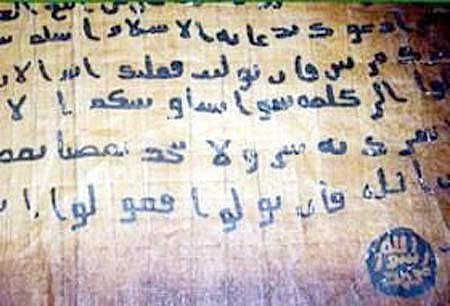 ادعوك بدعايه الاسلام اسلم
مرتين فان توليت فعليك اثم الا
لوا الى كلمه سوا بيننا وبينكم ا لا
نشرك به شيا ولا يتخذ بعضنا بعضا
الله فان تولوا فقولوا ا
الله
رسول
محمد